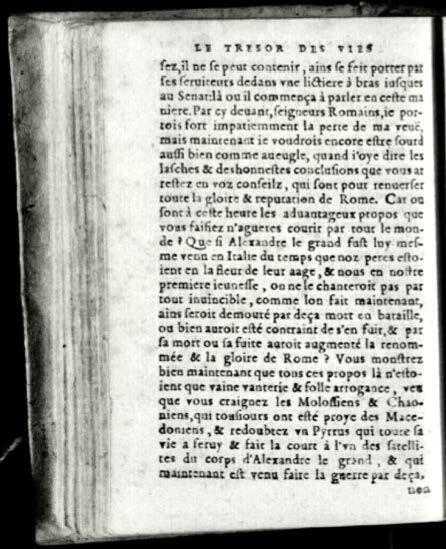 LE TRESOR DES VIES
sez, il ne se peut contenir, ains se feit porter par
ses seruiteurs dedans vne lictiere à bras iusques
au Senat: là ou il commença à parler en ceste ma
niere. Par cy deuant, seigneurs Romains, ie por-
tois fort impatiemment la perte de ma veuë,
mais maintenant ie voudrois encore estre sourd
aussi bien comme aueugle, quand i'oye dire les
lasches & deshonnestes conclusions que vous ar
restez en voz conseilz, qui sont pour renuerser
toute la gloire & reputation de Rome. Car ou
sont à ceste heure les aduantageux propos que
vous faisiez n'agueres courir par tout le mon-
de? Que si Alexandre le grand fust luy mes-
me venu en Italie du temps que noz peres esto-
ient en la fleur de leur aage, & nous en nostre
premiere ieunesse, on ne le chanteroit pas par
tout inuincible, comme lon fait maintenant,
ains seroit demouré par deça mort en bataille,
ou bien auroit esté contraint de s'en fuir, & par
sa mort ou sa fuite auroit augmenté la renom-
mée & la gloire de Rome? Vous monstrez
bien maintenant que tous ces propos là n'esto-
ient que vaine vanterie & folle arrogance, veu
que vous craignez les Molossiens & Chao-
niens, qui tousiours ont esté proye des Mace-
doniens, & redoubtez vn Pyrrus qui toute sa
vie a seruy & fait la court à l'vn des satelli-
tes du corps d'Alexandre le grand, & qui
maintenant est venu faire la guerre par deça,
non